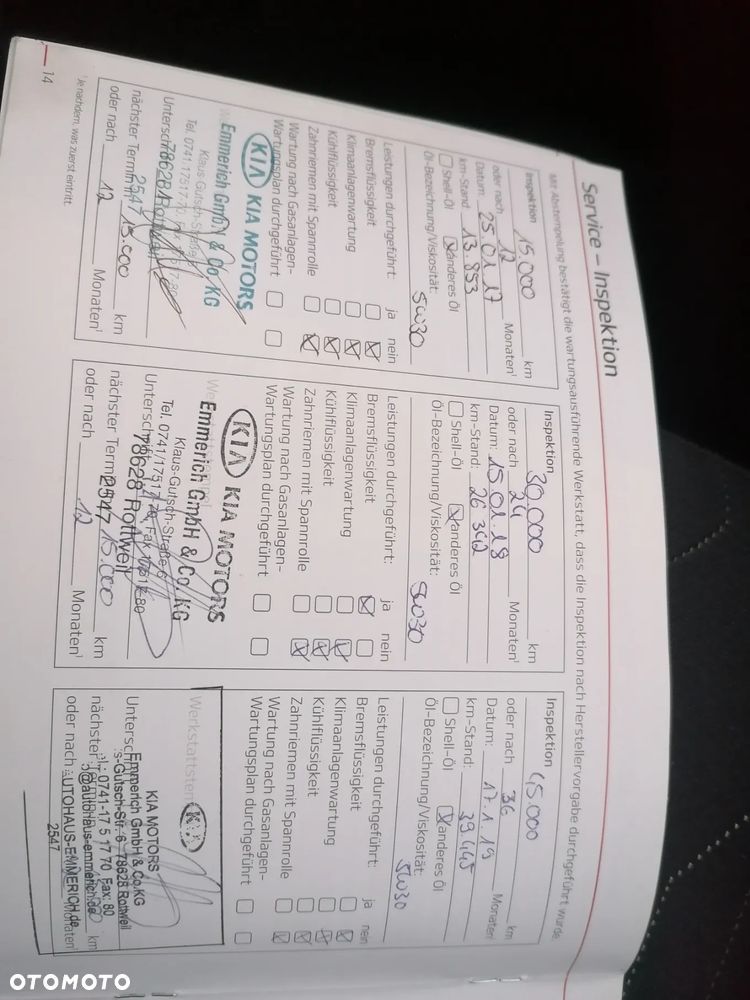 Service – Inspektion
Mit Abstempelung bestätigt die wartungsausführende Werkstatt, dass die Inspektion nach Herstellervorgabe durchgeführt wurde.
Inspektion 15000 km
oder nach 12 Monaten¹
Datum: 25.01.17
km-Stand: 13.853
Shell-Öl anderes Öl
Öl-Bezeichnung/Viskosität:
5W30
Leistungen durchgeführt: ja nein
Bremsflüssigkeit
Klimaanlagenwartung
Kühlflüssigkeit
Zahnriemen mit Spannrolle
Wartung nach Gasanlagen-
Wartungsplan durchgeführt
KIA KIA MOTORS
Emmerich GmbH & Co KG
Klaus-Gutsch-Straße
Tel. 0741.1751770
78628 Rottweil
2547
nächster Termin 15.000 km
oder nach 12 Monaten¹
Inspektion 30.000 km
oder nach 24 Monaten¹
Datum: 15.01.18
km-Stand: 26 342
Shell-Öl anderes Öl
Öl-Bezeichnung/Viskosität:
5W30
Leistungen durchgeführt: ja nein
Bremsflüssigkeit
Klimaanlagenwartung
Kühlflüssigkeit
Zahnriemen mit Spannrolle
Wartung nach Gasanlagen-
Wartungsplan durchgeführt
KIA KIA MOTORS
Emmerich GmbH & Co KG
Klaus-Gutsch-Straße 6
Tel. 0741/1751770
78628 Rottweil
2547
nächster Termin 15.000 km
oder nach 12 Monaten¹
Inspektion 45.000 km
oder nach 36 Monaten¹
Datum: 17.1.19
km-Stand: 39445
Shell-Öl anderes Öl
Öl-Bezeichnung/Viskosität:
5W30
Leistungen durchgeführt: ja nein
Bremsflüssigkeit
Klimaanlagenwartung
Kühlflüssigkeit
Zahnriemen mit Spannrolle
Wartung nach Gasanlagen-
Wartungsplan durchgeführt
KIA
KIA MOTORS
Emmerich GmbH & Co.KG
s-Gutsch-Str. 6 78628 Rottweil
0741-17 5 17 70 Fax: 80
@autohaus-emmerich.de
UTOHAUS-EMMERICH.de
2547
nächster km
oder nach Monaten¹
¹Je nachdem, was zuerst eintritt.
14
OTOMOTO